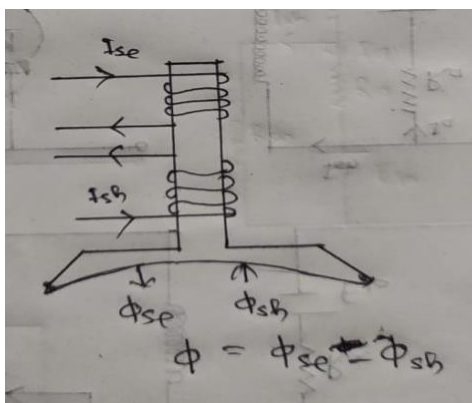 Ise
Ish
ϕse ϕsh
ϕ = ϕse - ϕsh